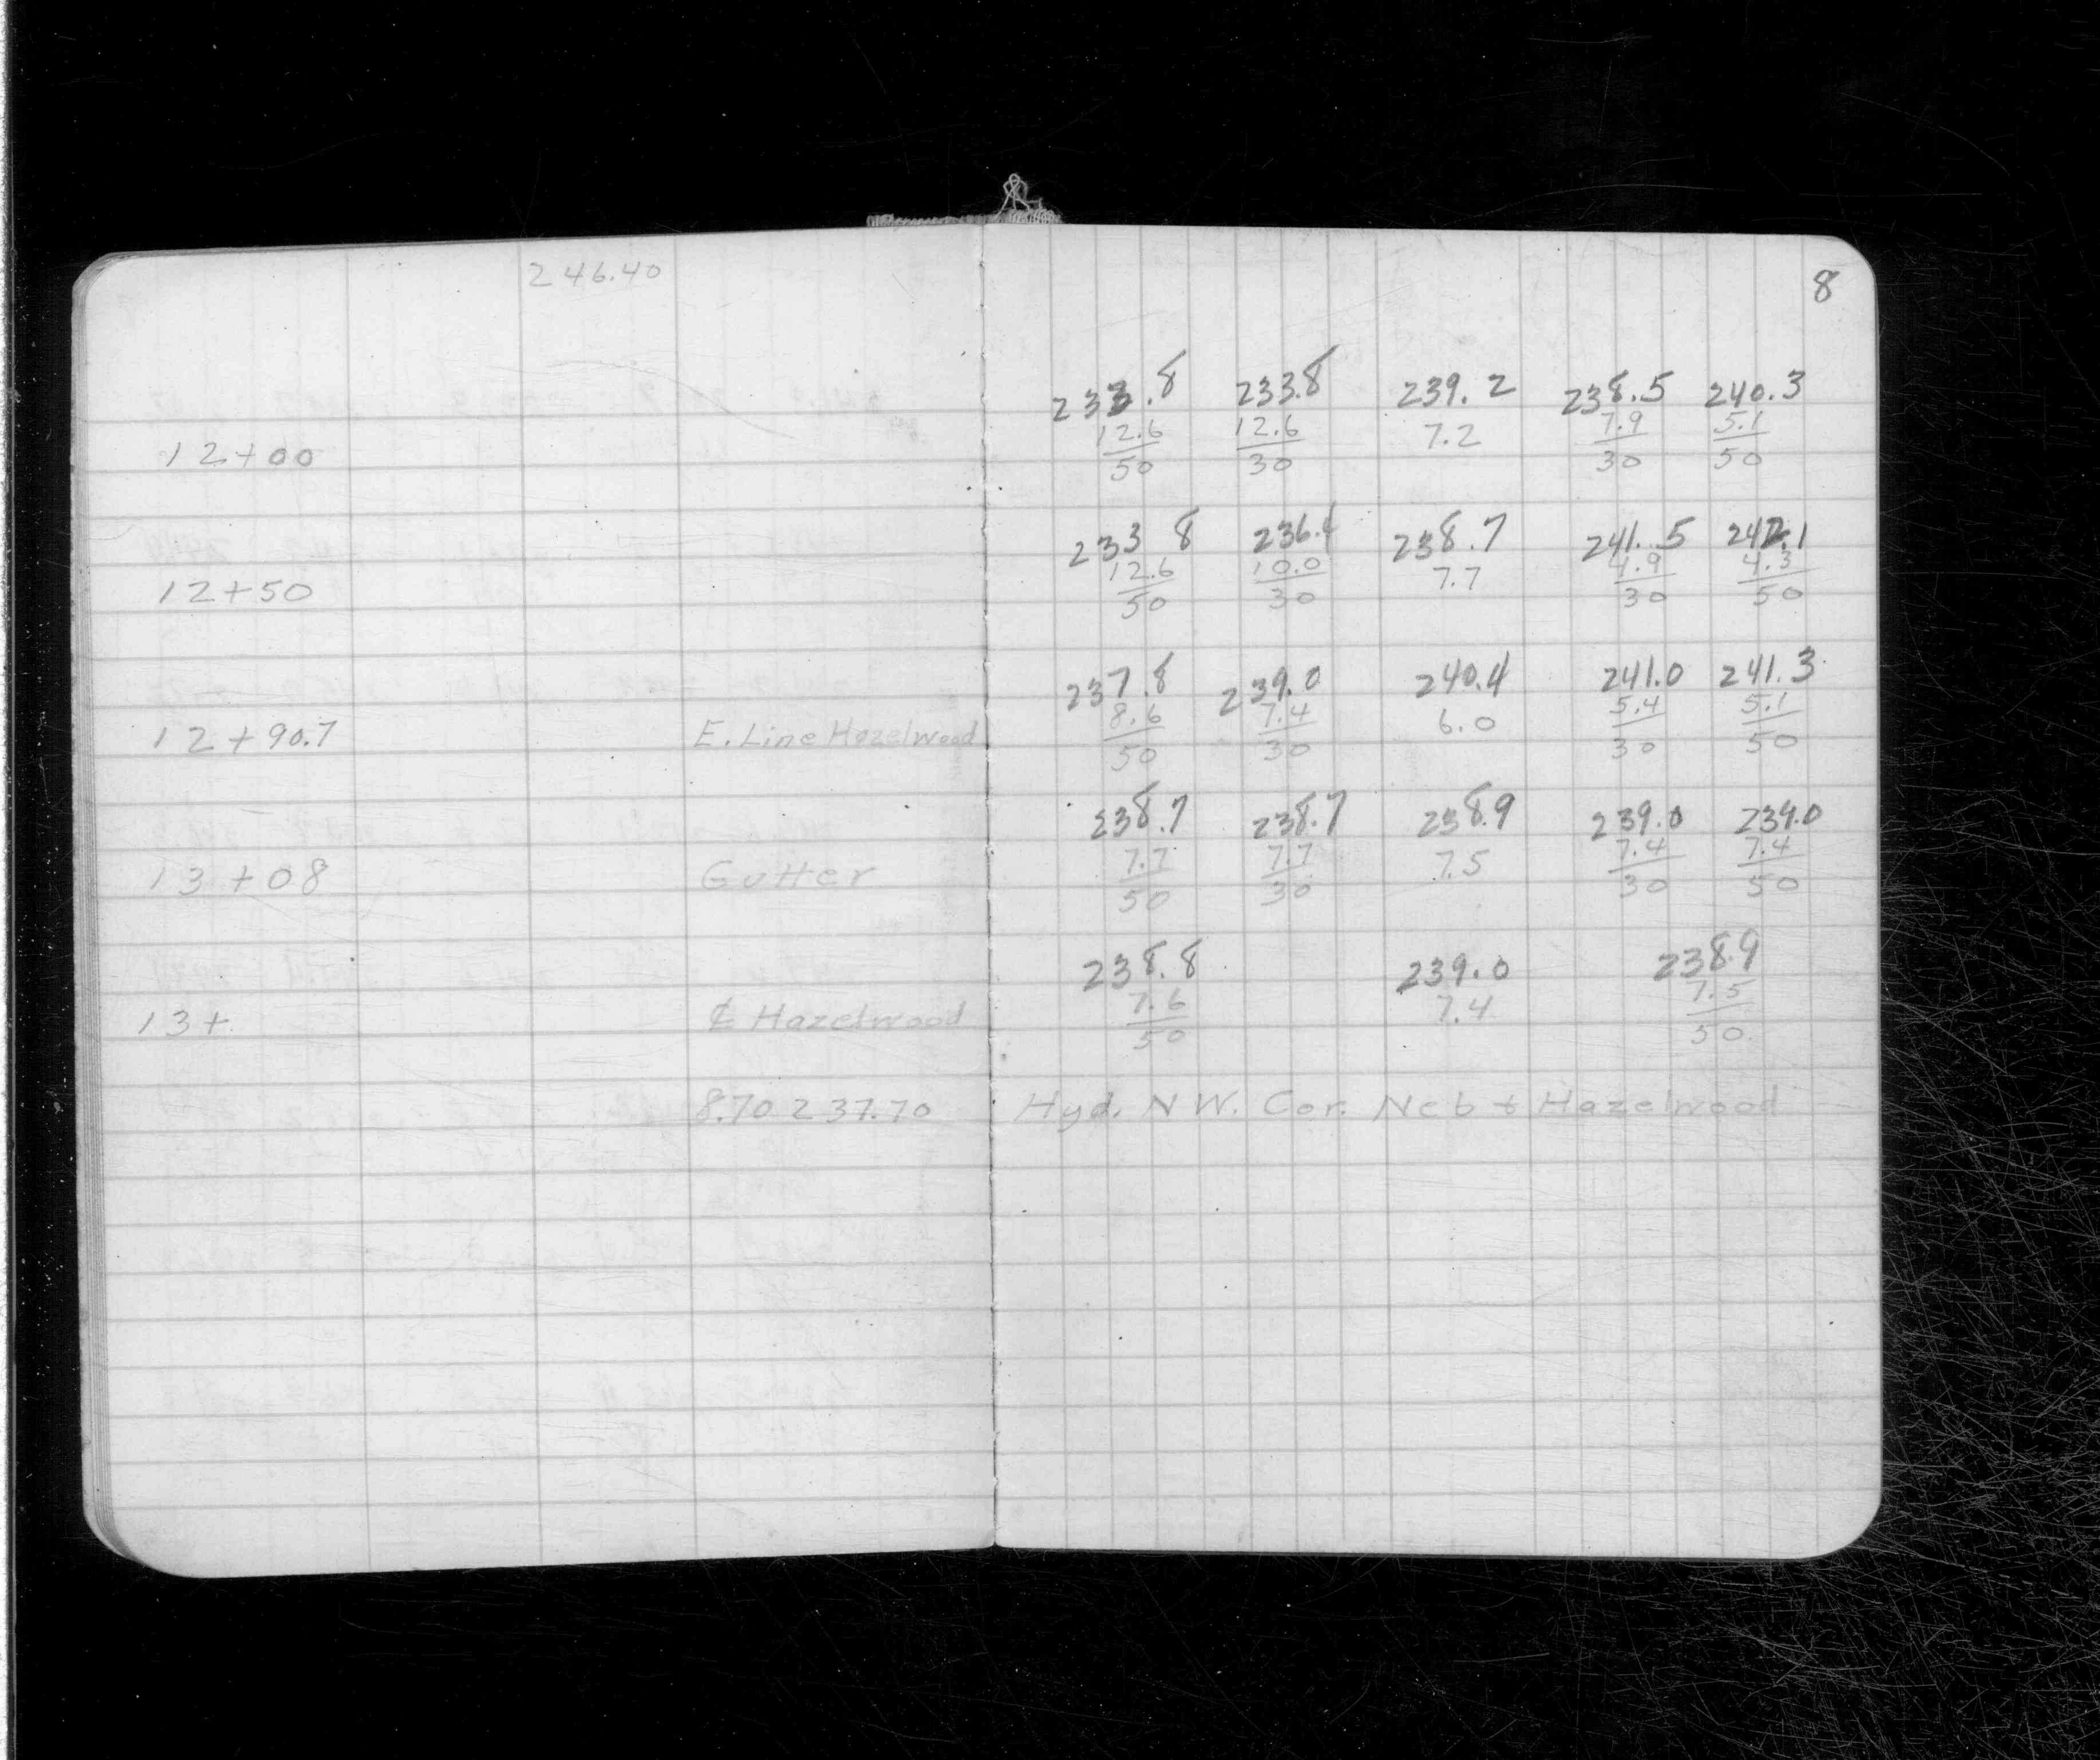 246.40
8
233.8 233.8 239.2 238.5 240.3
12.6 12.6 7.2 7.9 5.1
12+00 50 30 30 50
233 8 236.4 238.7 241.5 242.1
12.6 10.0 7.7 4.9 4.3
12+50 50 30 30 50
237.8 239.0 240.4 241.0 241.3
8.6 7.4 6.0 5.4 5.1
12+90.7 E. Line Hazelwood 50 30 30 50
238.7 238.7 238.9 239.0 239.0
7.7 7.7 7.5 7.4 7.4
13+08 Gutter 50 30 30 50
238.8 239.0 238.9
7.6 7.4 7.5
13+ ℄ Hazelwood 50 50
8.70 237.70 Hyd. N W. Cor. Neb + Hazelwood